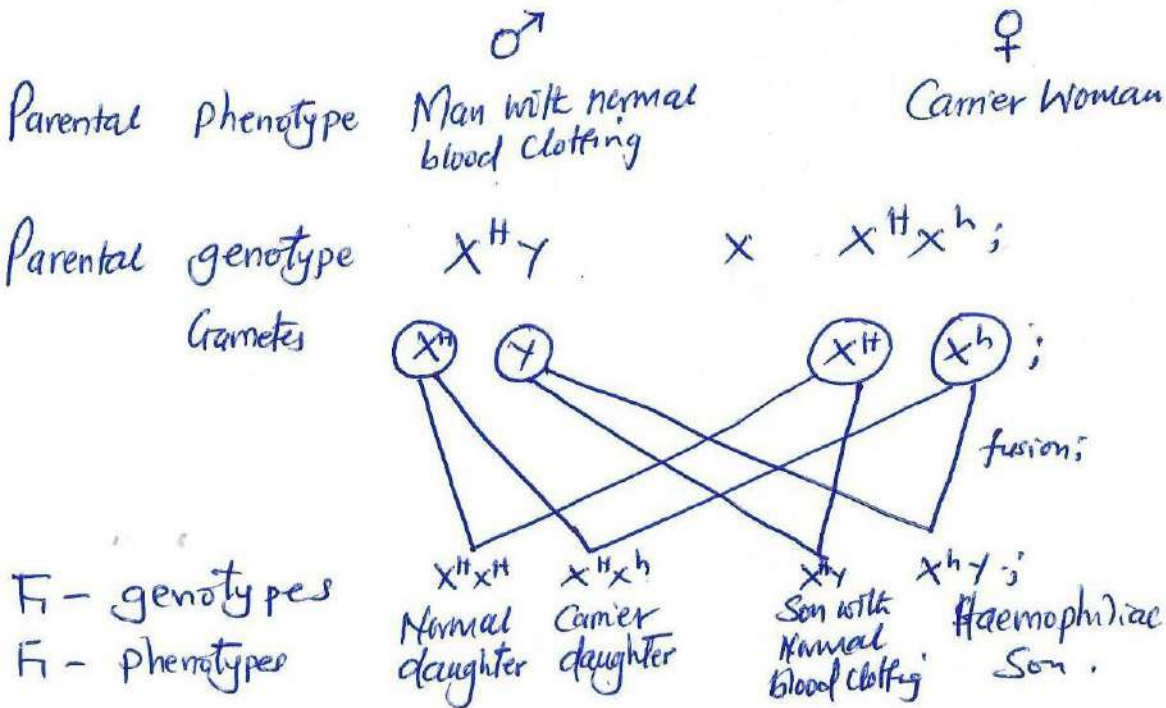 ♂ ♀
Parental phenotype Man with normal Carrier Woman
blood Clotting
Parental genotype X^H Y X X^H X^h ;
Gametes X^H Y X^H X^h ;
fusion;
F1 - genotypes X^H X^H X^H X^h X^H Y X^h Y ;
F1 - phenotypes Normal daughter Carrier daughter Son with Normal blood Clotting Haemophiliac Son .